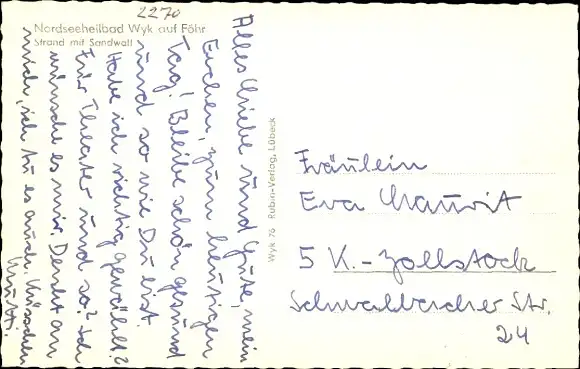 2270
Nordseeheilbad Wyk auf Föhr
Strand mit Sandwall
Alles Liebe und Gute, mein
Euchen, zum heutigen
Tag! Bleibe schön gesund
und so wie Du bist.
Habe ich richtig gewählt?
Für Theater und so? Ich
wünsche es mir. Denkt an
mich, ich tu es auch. Küsschen
Mutti.
Wyk 76 Rubin-Verlag, Lübeck
Fräulein
Eva Maurit
5 K.-Zollstock
Schwalbacher Str.
24